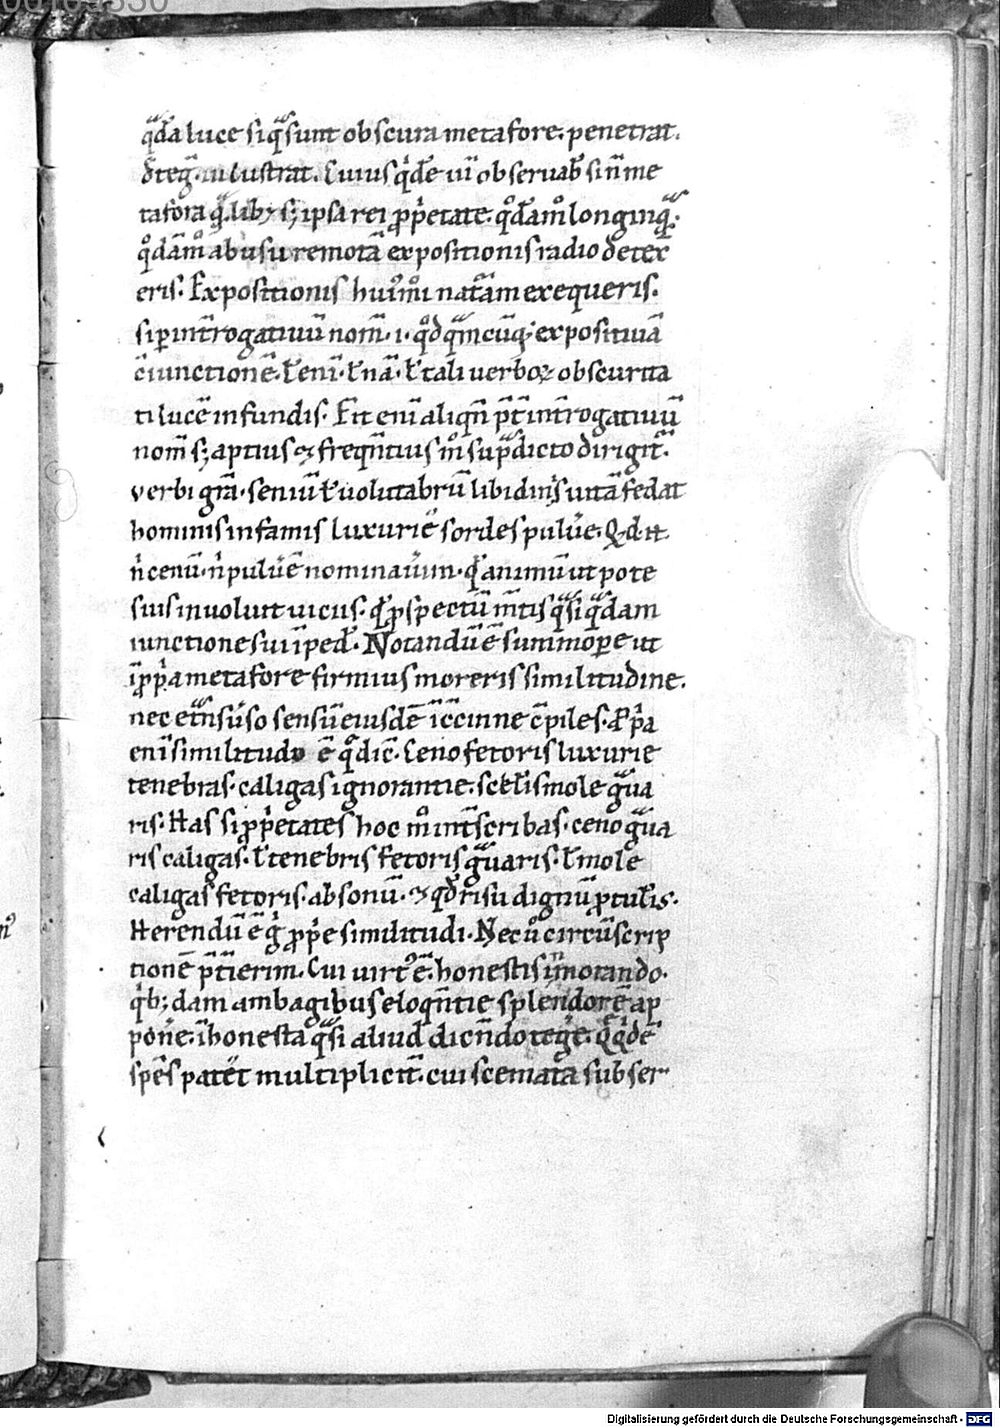 00103330
q̄dā luce siq̄ sunt obscura metafore. penetrat.
deteg̅. illustrat. Cuius q̇dē uī obseruab̄ sin̄ me
tafora q̄lib; s; ipsa rei ꝓp̄etate. q̊dāmo longinq̄.
q̊dāmo abusu remotā expositionis radio deteḡ
eris. Expositionis hui᷒mo᷒i natā̄m exequeris.
si per int̄rogatiuū nom̄. i. q̊dq̄mcūq; expositiuā
c̄iunctionē. ł eni. ł nā. ł tali uerboꝝ obscurita
ti lucē infundis. Fit eni aliqn̄ p̄t int̄rogatiuū
nom̄ s; aptius ⁊ freqn̄tius mo sup̄dicto dirigit̄.
verbi gr̄a. seniū ł uolutabrū libidinis uitā fedat
hominis infamis luxurie sordes puluē. Q. d. n̄
n̄ cenū. n̄ puluē nominauim. q̄ animū ut pote
suis inuoluit uiciis. q̄ ꝓspectū m̄tis q̄si q̄dam
iunctione sui īped̄. Notandū ē summope ut
ī ꝓp̄a metafore firmius moreris similitudine.
nec et n̄ sū so sensū eiusdē īc̄cinne c̄piles. Pp̄a
eni similitudo ē q̄ dic̄. Ceno fetoris luxurie
tenebras. caligas ignorantie. scel̄is mole g̊ua
ris. Has si ꝓp̄etates hoc mo int̄scribas. ceno g̊ua
ris caligas. ł tenebris fetoris g̊uaris. ł mole
caligas fetoris. absonū. ⁊ qd̄ risu dignū ꝓtul̄is.
Herendū ē g̊ ꝓp̄e similitudi. Nec ů circūscrip
tionē p̄t̄ierim. Cui uirt᷒ ē. honestis īmorando.
q̇b; dam ambagibus eloqn̄tie splendorē ap
pone᷒. īhonesta q̄si aliud dicn̄do teg̊e. Q̊ q̇dē
spēs patet multiplicit̄. cui scemata subser
Digitalisierung gefördert durch die Deutsche Forschungsgemeinschaft - DFG